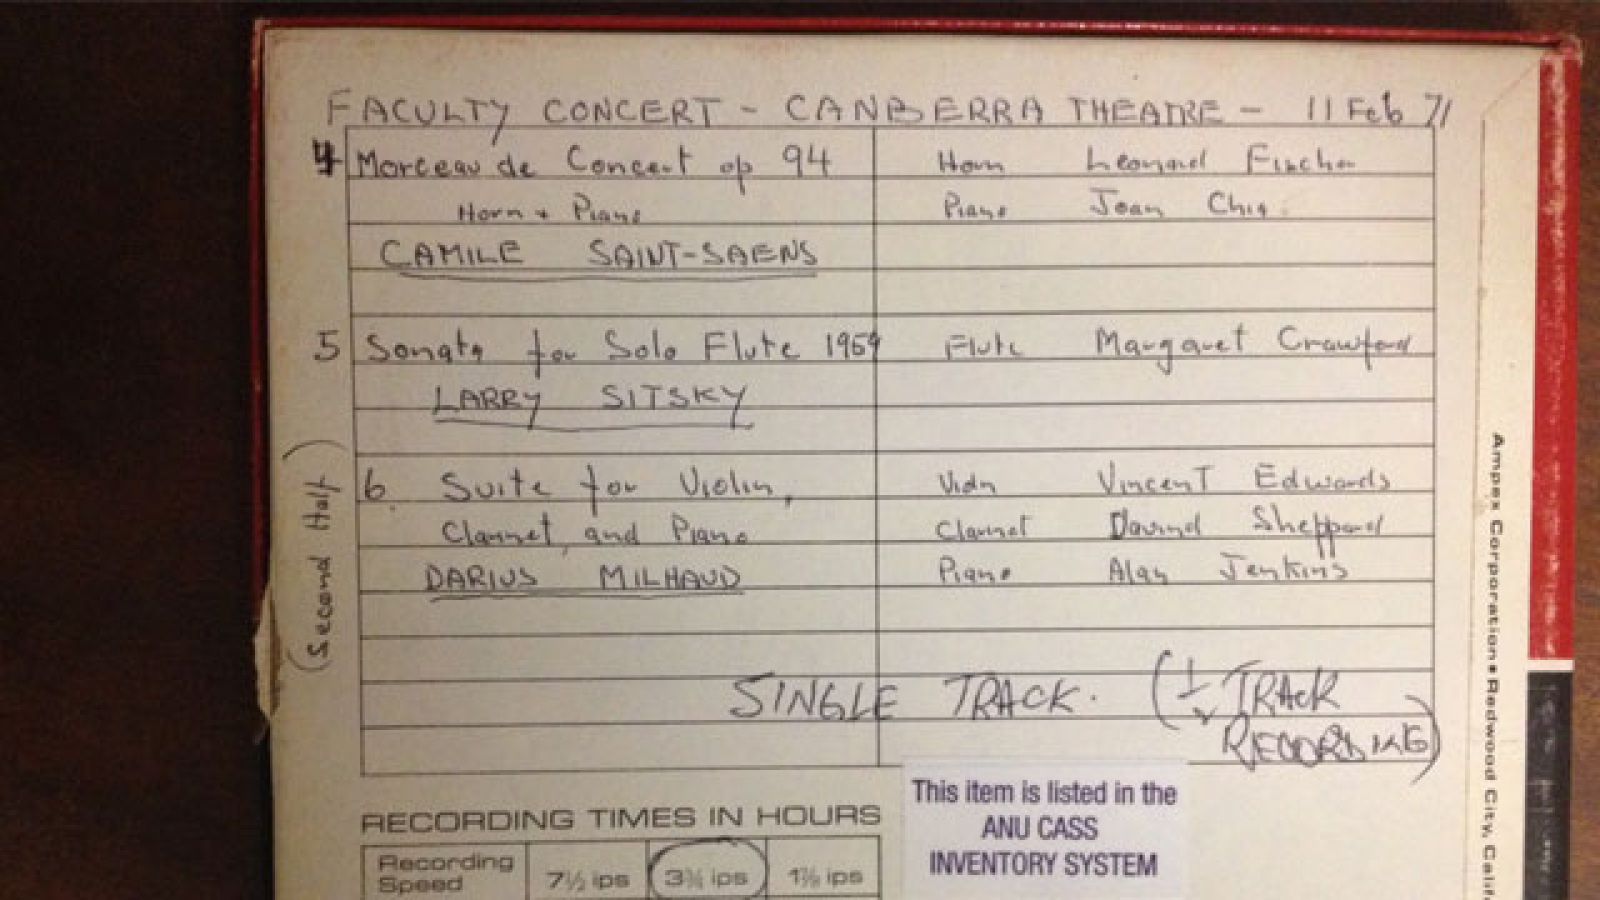 FACULTY CONCERT - CANBERRA THEATRE - 11 Feb 71
4 Morceau de Concert op 94 Horn Leonard Fischer
Horn + Piano Piano Joan Chia
CAMILE SAINT-SAENS
5 Sonata for Solo Flute 1959 Flute Margaret Crawford
LARRY SITSKY
(Second Half)
6. Suite for Violin, Violin Vincent Edwards
Clarinet, and Piano Clarinet David Sheppard
DARIUS MILHAUD Piano Alan Jenkins
SINGLE TRACK. (½ TRACK
RECORDING)
This item is listed in the
ANU CASS
INVENTORY SYSTEM
RECORDING TIMES IN HOURS
Recording Speed 7½ ips 3¾ ips 1⅞ ips
Ampex Corporation • Redwood City, Calif